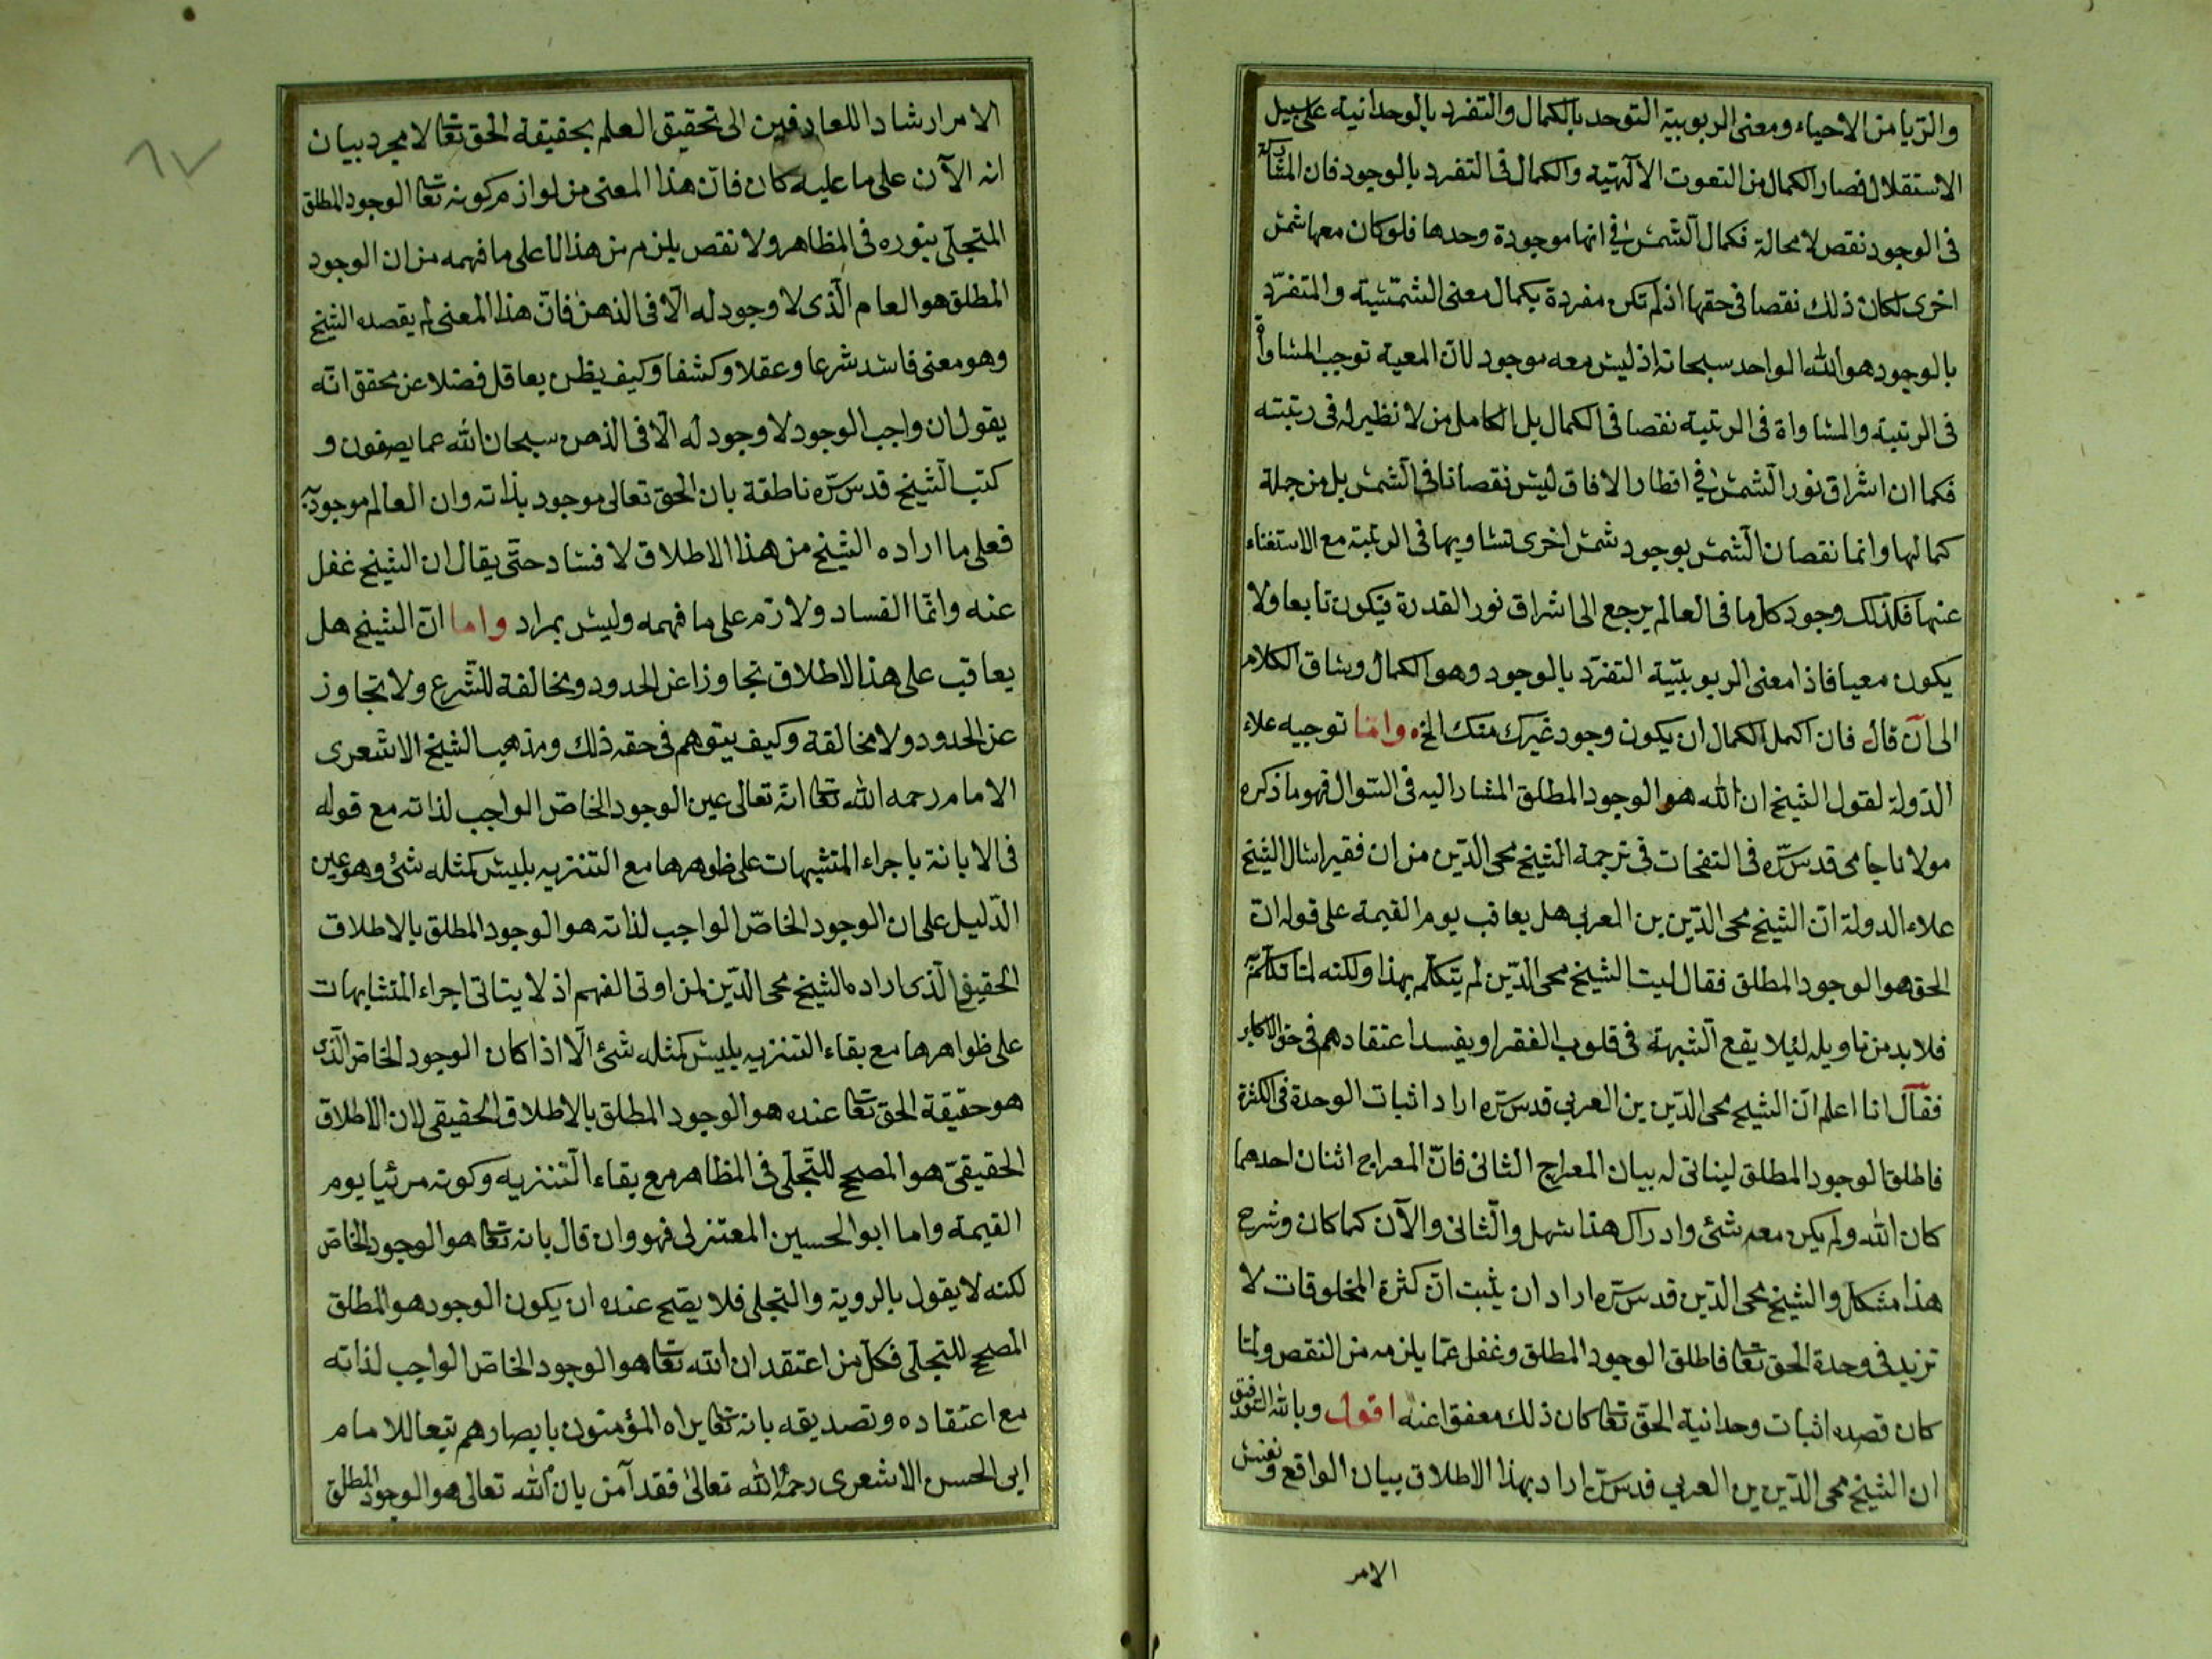 والريا من الاحياء ومعنى الربوبية التوحد بالكمال والتفرد بالوحدانية على سبيل
الاستقلال فصار الكمال من النعوت الآلهية والكمال فى التفرد بالوجود فان المشاركة
فى الوجود نقص لا محالة فكمال الشمس في انها موجودة وحدها فلو كان معها شمس
اخرى لكان ذلك نقصا فى حقها اذ لم تكن مفردة بكمال معنى الشمسية والمتفرد
بالوجود هو الله الواحد سبحانه اذ ليس معه موجود لان المعية توجب المساواة
فى الرتبة والمساواة فى الرتبة نقصا فى الكمال بل الكامل من لا نظير له فى رتبته
فكما ان اشراق نور الشمس في اقطار الافاق ليس نقصانا في الشمس بل من جملة
كمالها وانما نقصان الشمس بوجود شمس اخرى تساويها فى الرتبة مع الاستغناء
عنها فكذلك وجود كل ما فى العالم يرجع الى اشراق نور القدرة فيكون تابعا ولا
يكون معيا فاذا معنى الربوبية التفرد بالوجود وهو الكمال وساق الكلام
الى ان قال فان اكمل الكمال ان يكون وجود غيرك منك الخ واما توجيه علاء
الدولة لقول الشيخ ان الله هو الوجود المطلق المشار اليه فى السوال فهو ما ذكره
مولانا جامى قدس سره فى النفحات فى ترجمة الشيخ محى الدين من ان فقيرا سال الشيخ
علاء الدولة ان الشيخ محى الدين بن العربى هل يعاقب يوم القيمة على قوله ان
الحق هو الوجود المطلق فقال ليت الشيخ محى الدين لم يتكلم بهذا ولكنه لما تكلم به
فلا بد من تاويله ليلا يقع الشبهة فى قلوب الفقرا ويفسد اعتقادهم فى حق الاكابر
فقال انا اعلم ان الشيخ محى الدين بن العربي قدس سره اراد اثبات الوحدة فى الكثرة
فاطلق الوجود المطلق ليتاتى له بيان المعراج الثانى فان المعراج اثنان احدهما
كان الله ولم يكن معه شئ وادراك هذا سهل والثانى والآن كما كان وشرح
هذا مشكل والشيخ محى الدين قدس سره اراد ان يثبت ان كثرة المخلوقات لا
تزيد فى وحدة الحق تعا فاطلق الوجود المطلق وغفل عما يلزمه من النقص ولما
كان قصده اثبات وحدانية الحق تعا كان ذلك معفوا عنه اقول وبالله التوفيق
ان الشيخ محى الدين بن العربي قدس سره اراد بهذا الاطلاق بيان الواقع ونفس
الامر
الامر ارشادا للعارفين الى تحقيق العلم بحقيقة الحق تعا لا مجرد بيان
انه الآن على ما عليه كان فان هذا المعنى من لوازم كونه تعا الوجود المطلق
المتجلى بنوره فى المظاهر ولا نقص يلزم من هذا الا على ما فهمه من ان الوجود
المطلق هو العام الذى لا وجود له الا فى الذهن فان هذا المعنى لم يقصده الشيخ
وهو معنى فاسد شرعا وعقلا وكشفا وكيف يظن بعاقل فضلا عن محقق انه
يقول ان واجب الوجود لا وجود له الا فى الذهن سبحان الله عما يصفون و
كتب الشيخ قدس سره ناطقة بان الحق تعالى موجود بذاته وان العالم موجود به
فعلى ما اراده الشيخ من هذا الاطلاق لا فساد حتى يقال ان الشيخ غفل
عنه وانما الفساد ولازم على ما فهمه وليس بمراد واما ان الشيخ هل
يعاقب على هذا الاطلاق تجاوزا عن الحدود ومخالفة للشرع ولا تجاوز
عن الحدود ولا مخالفة وكيف يتوهم فى حقه ذلك ومذهب الشيخ الاشعرى
الامام رحمه الله تعا انه تعالى عين الوجود الخاص الواجب لذاته مع قوله
فى الابانة باجراء المتشبهات على ظوهرها مع التنزيه بليس كمثله شئ وهو عين
الدليل على ان الوجود الخاص الواجب لذاته هو الوجود المطلق بالاطلاق
الحقيقى الذى اراده الشيخ محى الدين لمن اوتى الفهم اذ لا يتاتى اجراء المتشابهات
على ظواهرها مع بقاء التنزيه بليس كمثله شئ الا اذا كان الوجود الخاص الذى
هو حقيقة الحق تعا عنده هو الوجود المطلق بالاطلاق الحقيقى لان الاطلاق
الحقيقى هو المصحح للتجلى فى المظاهر مع بقاء التنزيه وكونه مرئيا يوم
القيمة واما ابو الحسين المعتزلى فهو وان قال بانه تعا هو الوجود الخاص
لكنه لا يقول بالروية والتجلى فلا يصح عنده ان يكون الوجود هو المطلق
المصحح للتجلى فكل من اعتقد ان الله تعا هو الوجود الخاص الواجب لذاته
مع اعتقاده وتصديقه بانه تعا يراه المؤمنون بابصارهم تبعا للامام
ابى الحسن الاشعرى رحمه الله تعالى فقد آمن بان الله تعالى هو الوجود المطلق